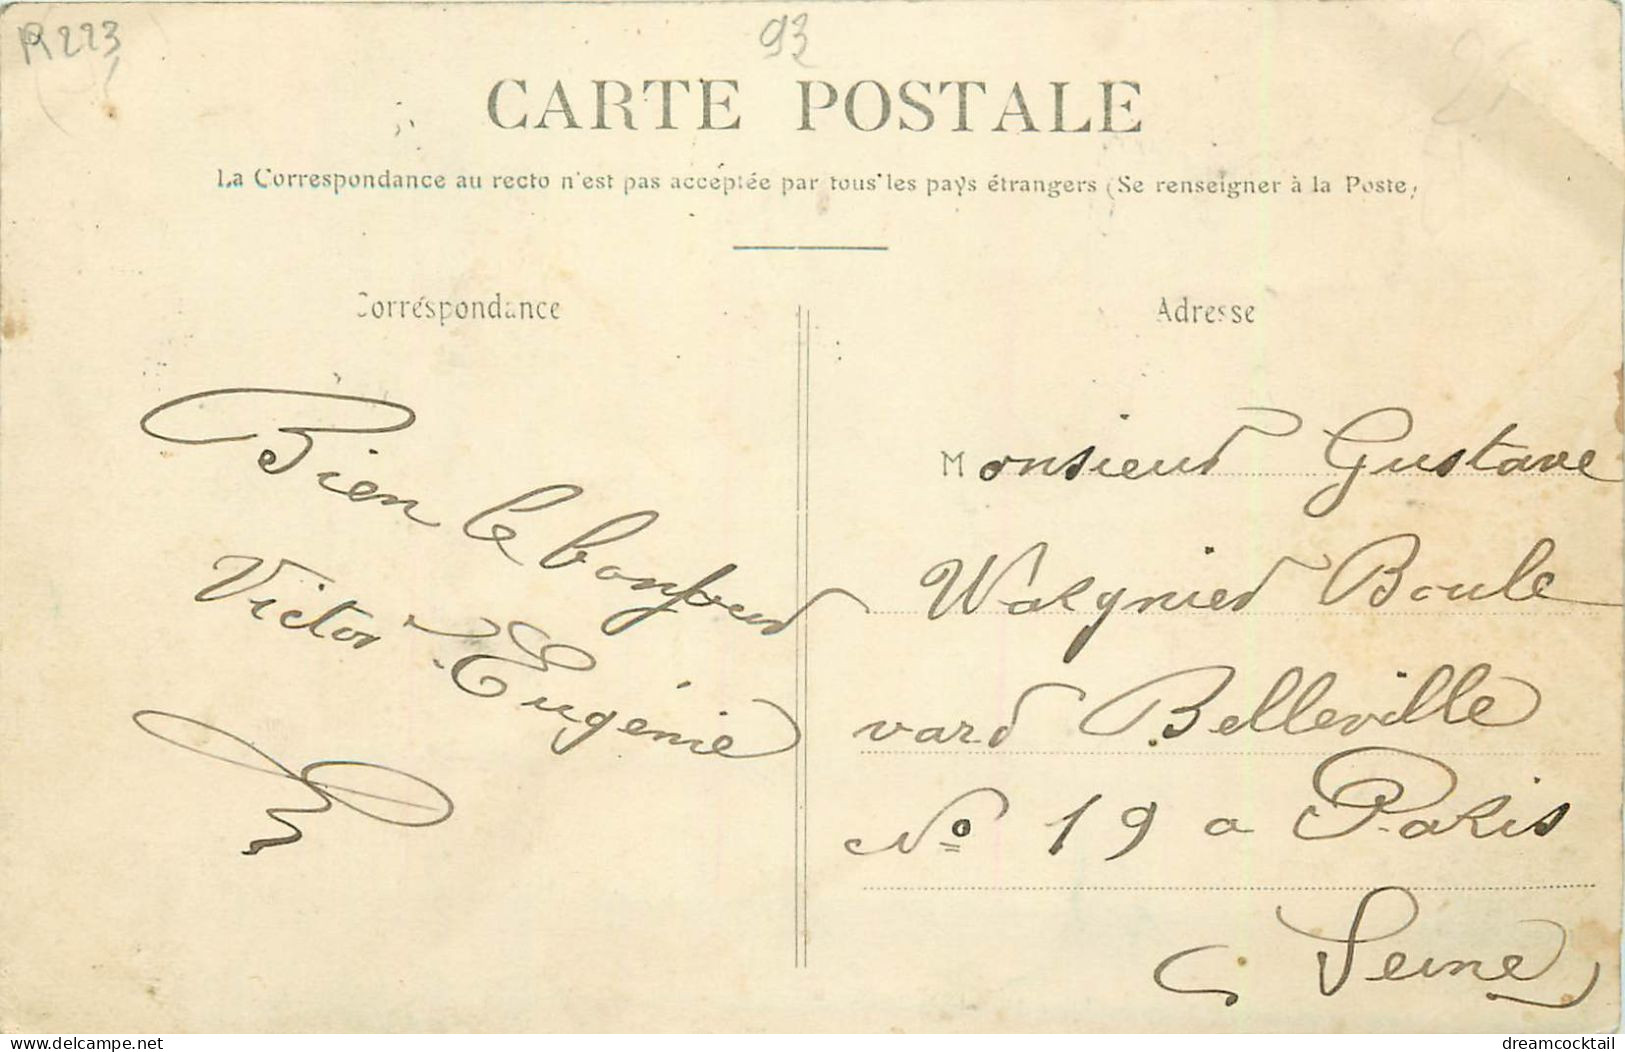 R223
93
CARTE POSTALE
La Correspondance au recto n'est pas acceptée par tous les pays étrangers (Se renseigner à la Poste)
Correspondance
Adresse
Bien le bonjour
Victor Eugénie
Monsieur Gustave
Walgnier Boule
vard Belleville
No 19 a Paris
Seine
www.delcampe.net
dreamcocktail